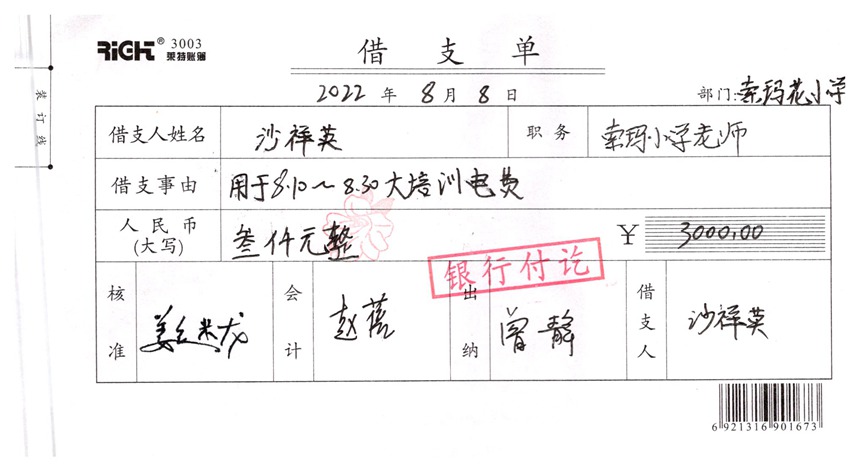 RiGHT® 3003
莱特账簿
借 支 单
2022 年 8 月 8 日 部门:索玛花小学
装订线
借支人姓名 沙祥英 职务 索玛小学老师
借支事由 用于8.10~8.30大培训电费
人民币 (大写) 叁仟元整 ¥ 3000.00
银行付讫
核准 会计 赵蓓 出纳 曾静 借支人 沙祥英
6 921316 901673